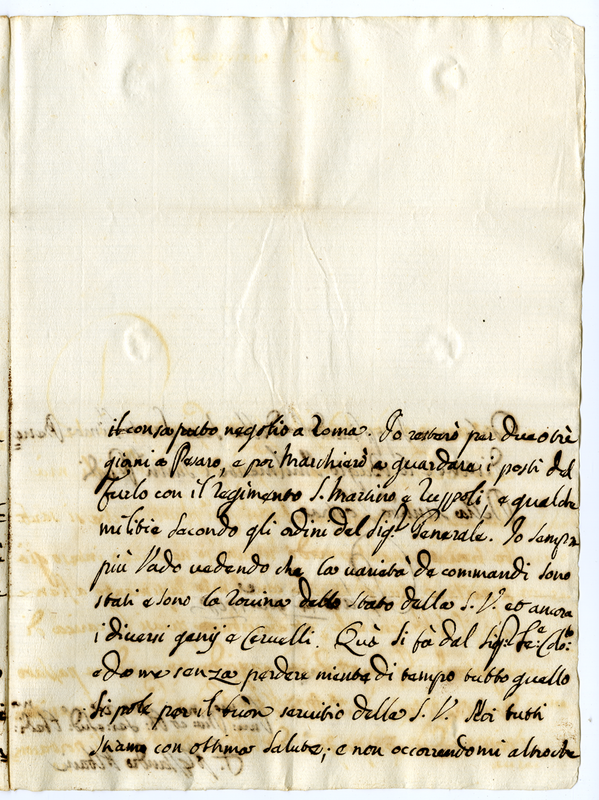 il consaputo negotio a Roma. Io resterò per due o trè
giorni a Pesaro, e poi Marchierò a guardare i posti del
Furlo con il Regimento S. Martino e Ruspoli, e qualche
militie secondo gli ordini del Sig.r Generale. Io sempre
più Vado vedendo che la varietà de commandi sono
stati e sono la rovina dello stato della S. V. et ancora
i diversi genij e Cervelli. Quà si fà dal Sig.r
e da me senza perdere niente di tempo tutto quello
si pole per il buon servitio della S. V. Noi tutti
stiamo con ottima salute; e non occorrendomi altro che